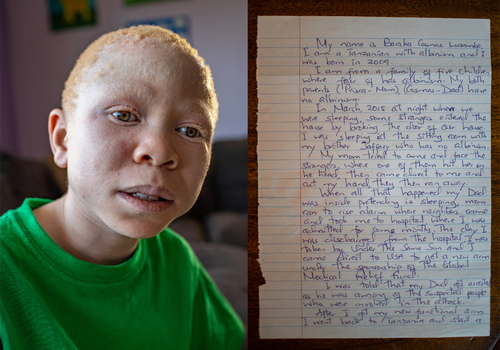 My name is Baraka Cosmas Lusambo.
I am a Tanzanian with albinism and I
was born in 2009.
I am from a family of five children,
where four of has albinism. My both
parents (Prisca - Mom) (Cosmas - Dad) have
no albinism.
In March 2015 at night when we
were sleeping, some strangers entered the
house by broking the door of our house.
I was sleeping at the sitting room with
my brother Jaffary who has no albinism.
My mom tried to came and face the
strangers, where one of them hit her on
he head, then came direct to me and
cut my hand, they then run away.
When all that happened my Dad
was inside pretending is sleeping, mom
ran to rise alarm where neighbors came
and took me to hospital where I was
admitted for some months. The day I
was discharged from the hospital I was
taken by Under The Same Sun and I
came direct to USA to get a new arm
under the sponsorship of the Global
Medical Relief Fund.
I was told that my Dad got arrested
as he was among of the suspected people
who were involved in the attack.
After I got my new functional arm
I went back to Tanzania and start a